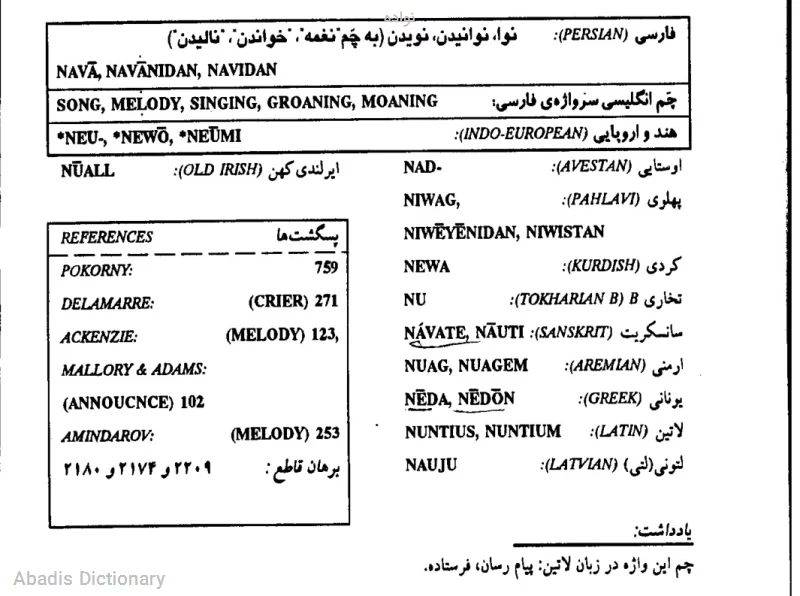 نواده
فارسی (PERSIAN): نوا، نوانیدن، نویدن (به چَم "نغمه"، "خواندن"، "نالیدن")
NAVĀ, NAVĀNIDAN, NAVIDAN
چَم انگلیسی سرواژه‌ی فارسی: SONG, MELODY, SINGING, GROANING, MOANING
هند و اروپایی (INDO-EUROPEAN): *NEU-, *NEWŌ, *NEŪMI
اوستایی (AVESTAN): NAD-
ایرلندی کهن (OLD IRISH): NŪALL
پهلوی (PAHLAVI): NIWAG,
NIWĒYĒNIDAN, NIWISTAN
کردی (KURDISH): NEWA
تخاری B (TOKHARIAN B): NU
سانسکریت (SANSKRIT): NÁVATE, NĀUTI
ارمنی (AREMIAN): NUAG, NUAGEM
یونانی (GREEK): NĒDA, NĒDŌN
لاتین (LATIN): NUNTIUS, NUNTIUM
لتونی(لتی) (LATVIAN): NAUJU
REFERENCES پسگشت‌ها
POKORNY: 759
DELAMARRE: (CRIER) 271
ACKENZIE: (MELODY) 123,
MALLORY & ADAMS:
(ANNOUCNCE) 102
AMINDAROV: (MELODY) 253
برهان قاطع: ۲۲۰۹ و ۲۱۷۴ و ۲۱۸۰
یادداشت:
چم این واژه در زبان لاتین: پیام رسان، فرستاده.
Abadis Dictionary